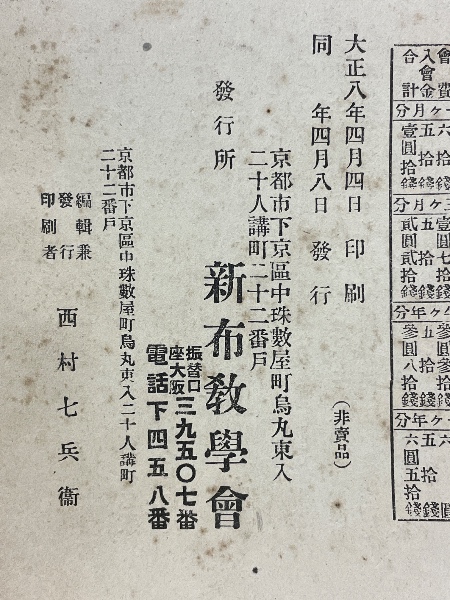 會費
入會金
合計
一ヶ月分
六拾錢
五拾錢
壹圓拾錢
三ヶ月分
壹圓七拾錢
五拾錢
貳圓貳拾錢
參圓
五拾錢
參圓八拾錢
一ヶ年分
六圓
五拾錢
六圓五拾錢
大正八年四月四日印刷
同　年四月八日發行
（非賣品）
京都市下京區中珠數屋町烏丸東入
二十人講町二十二番戶
發行所　新布敎學會
振替口座大阪三九五〇七番
電話下四五八番
京都市下京區中珠數屋町烏丸東入二十人講町
二十二番戶
編輯兼發行印刷者　西村七兵衞